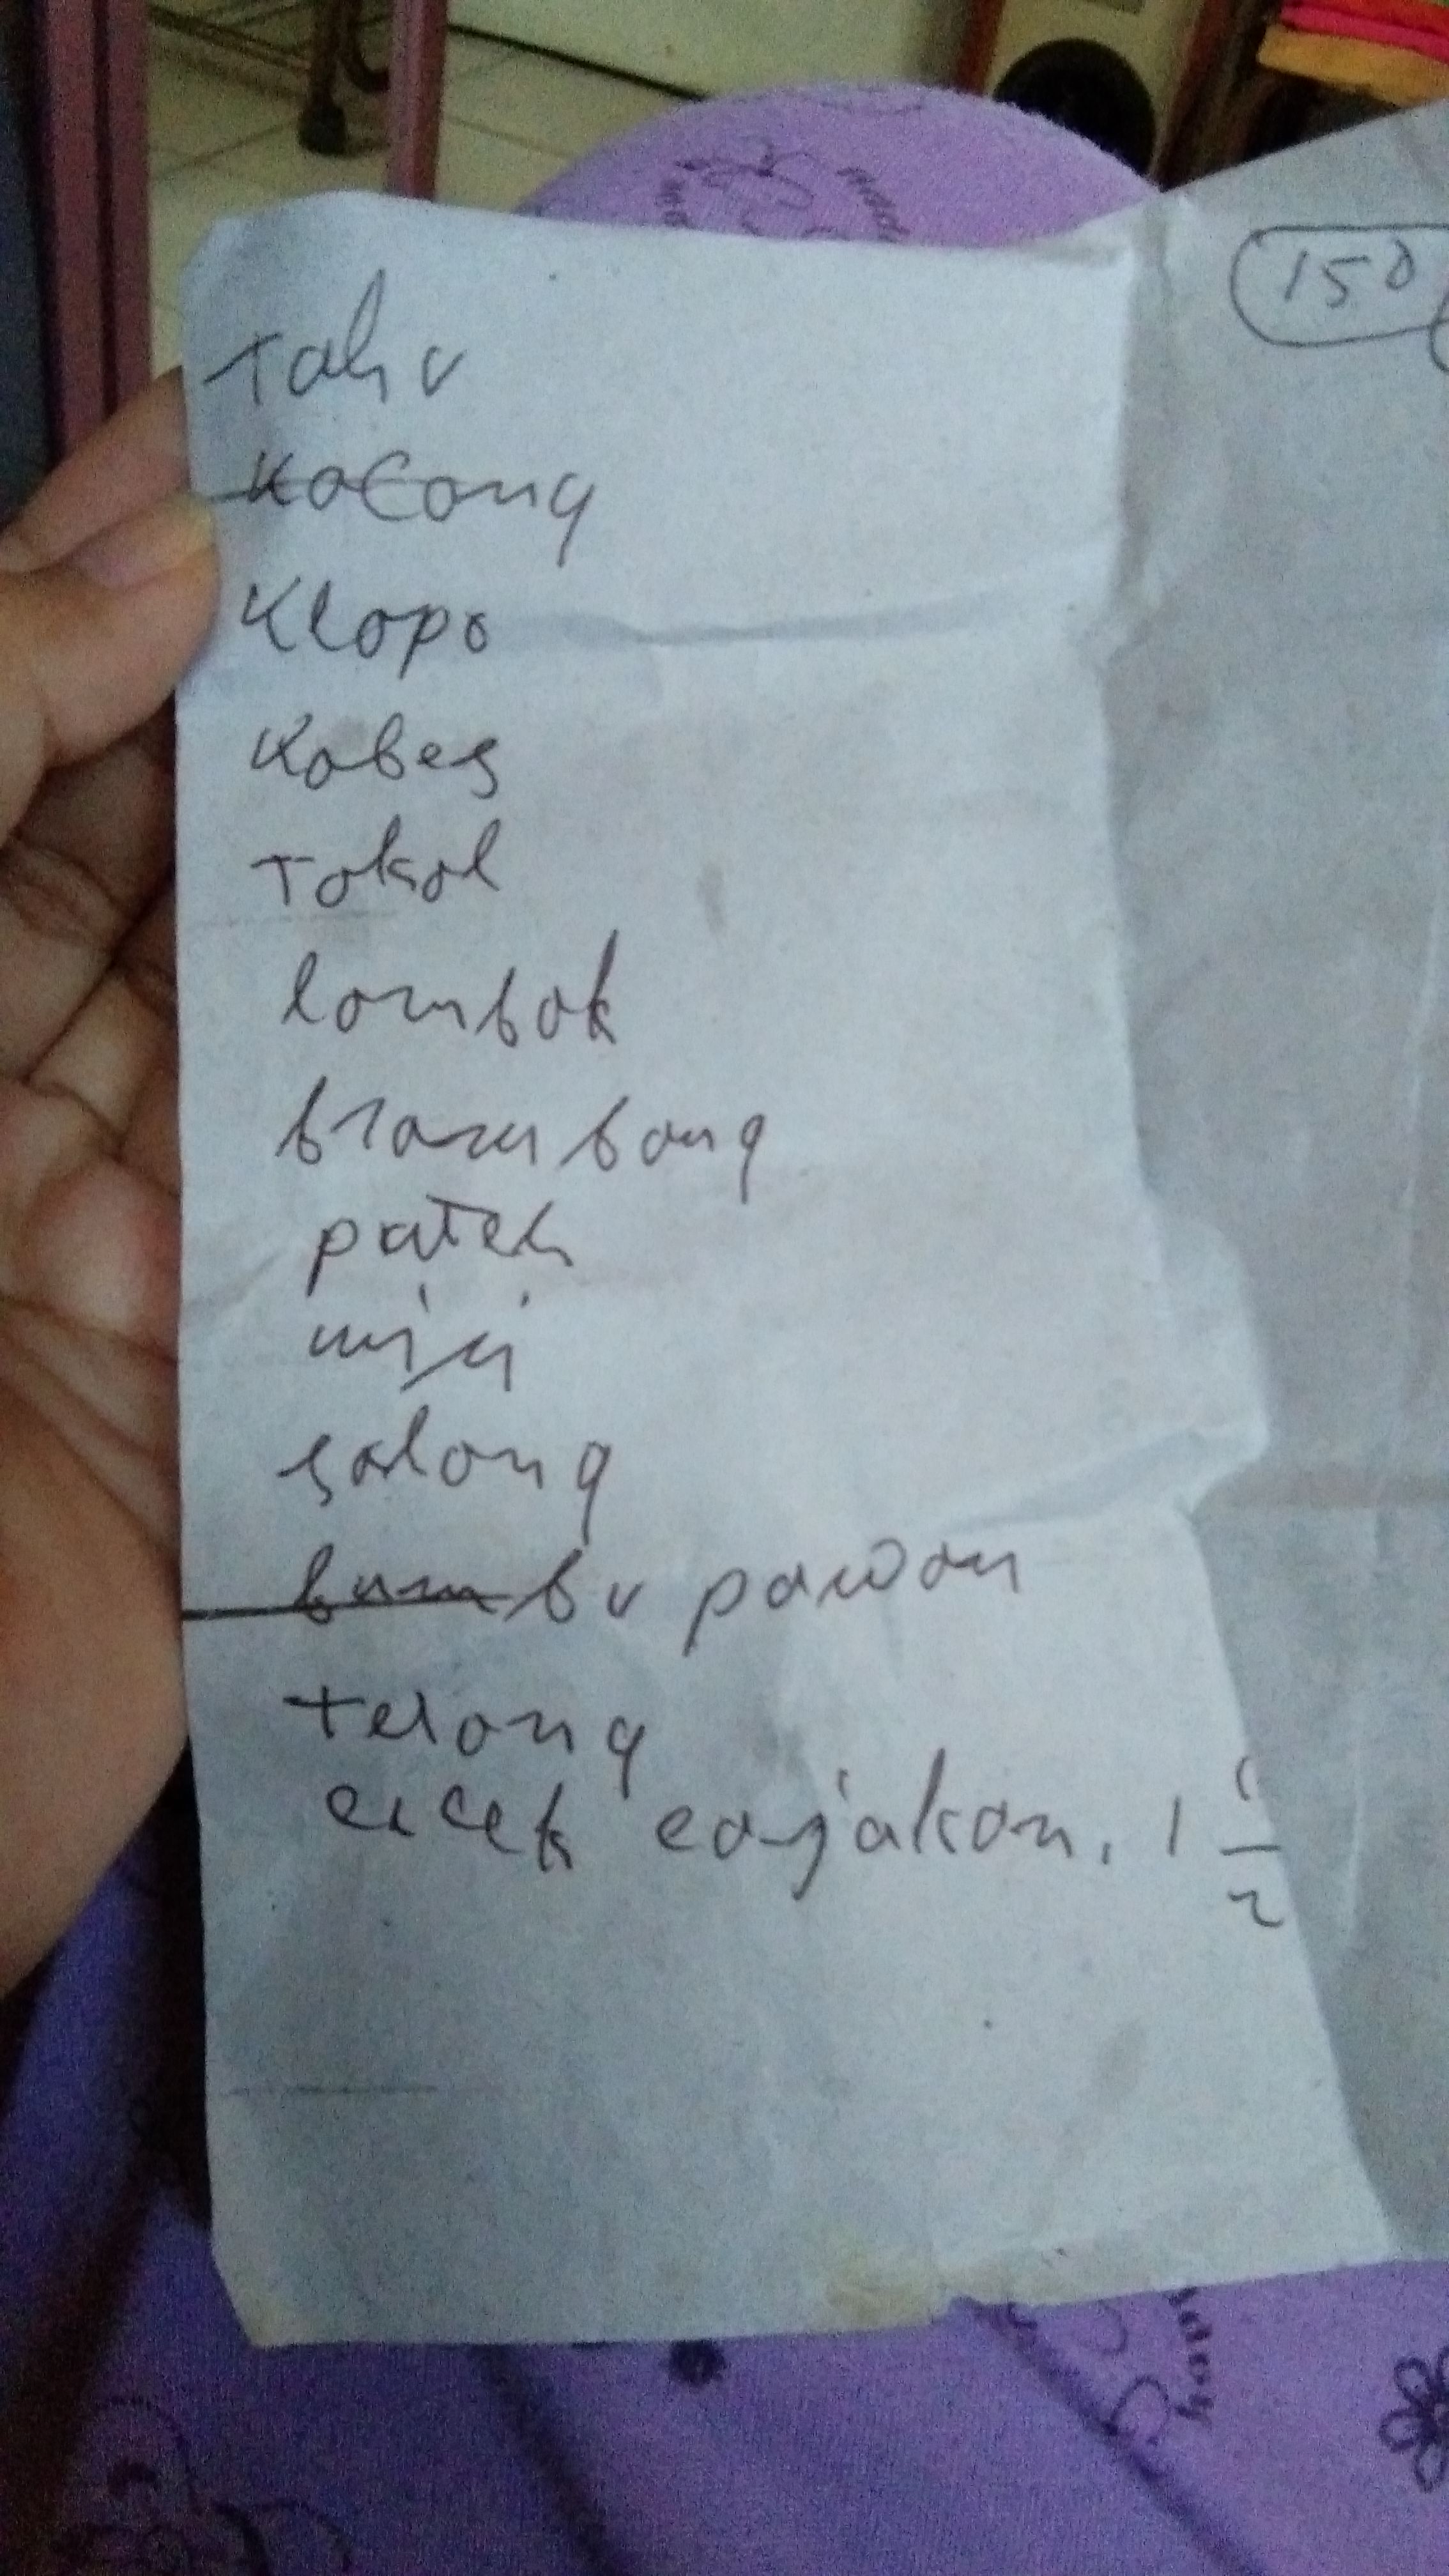 Tahu
Kacang
Klopo
Kobes
Tokol
lombok
brambang
puteh
miri
salong
bumbu pawon
telong
cicek cajakan. 1 1/2
150